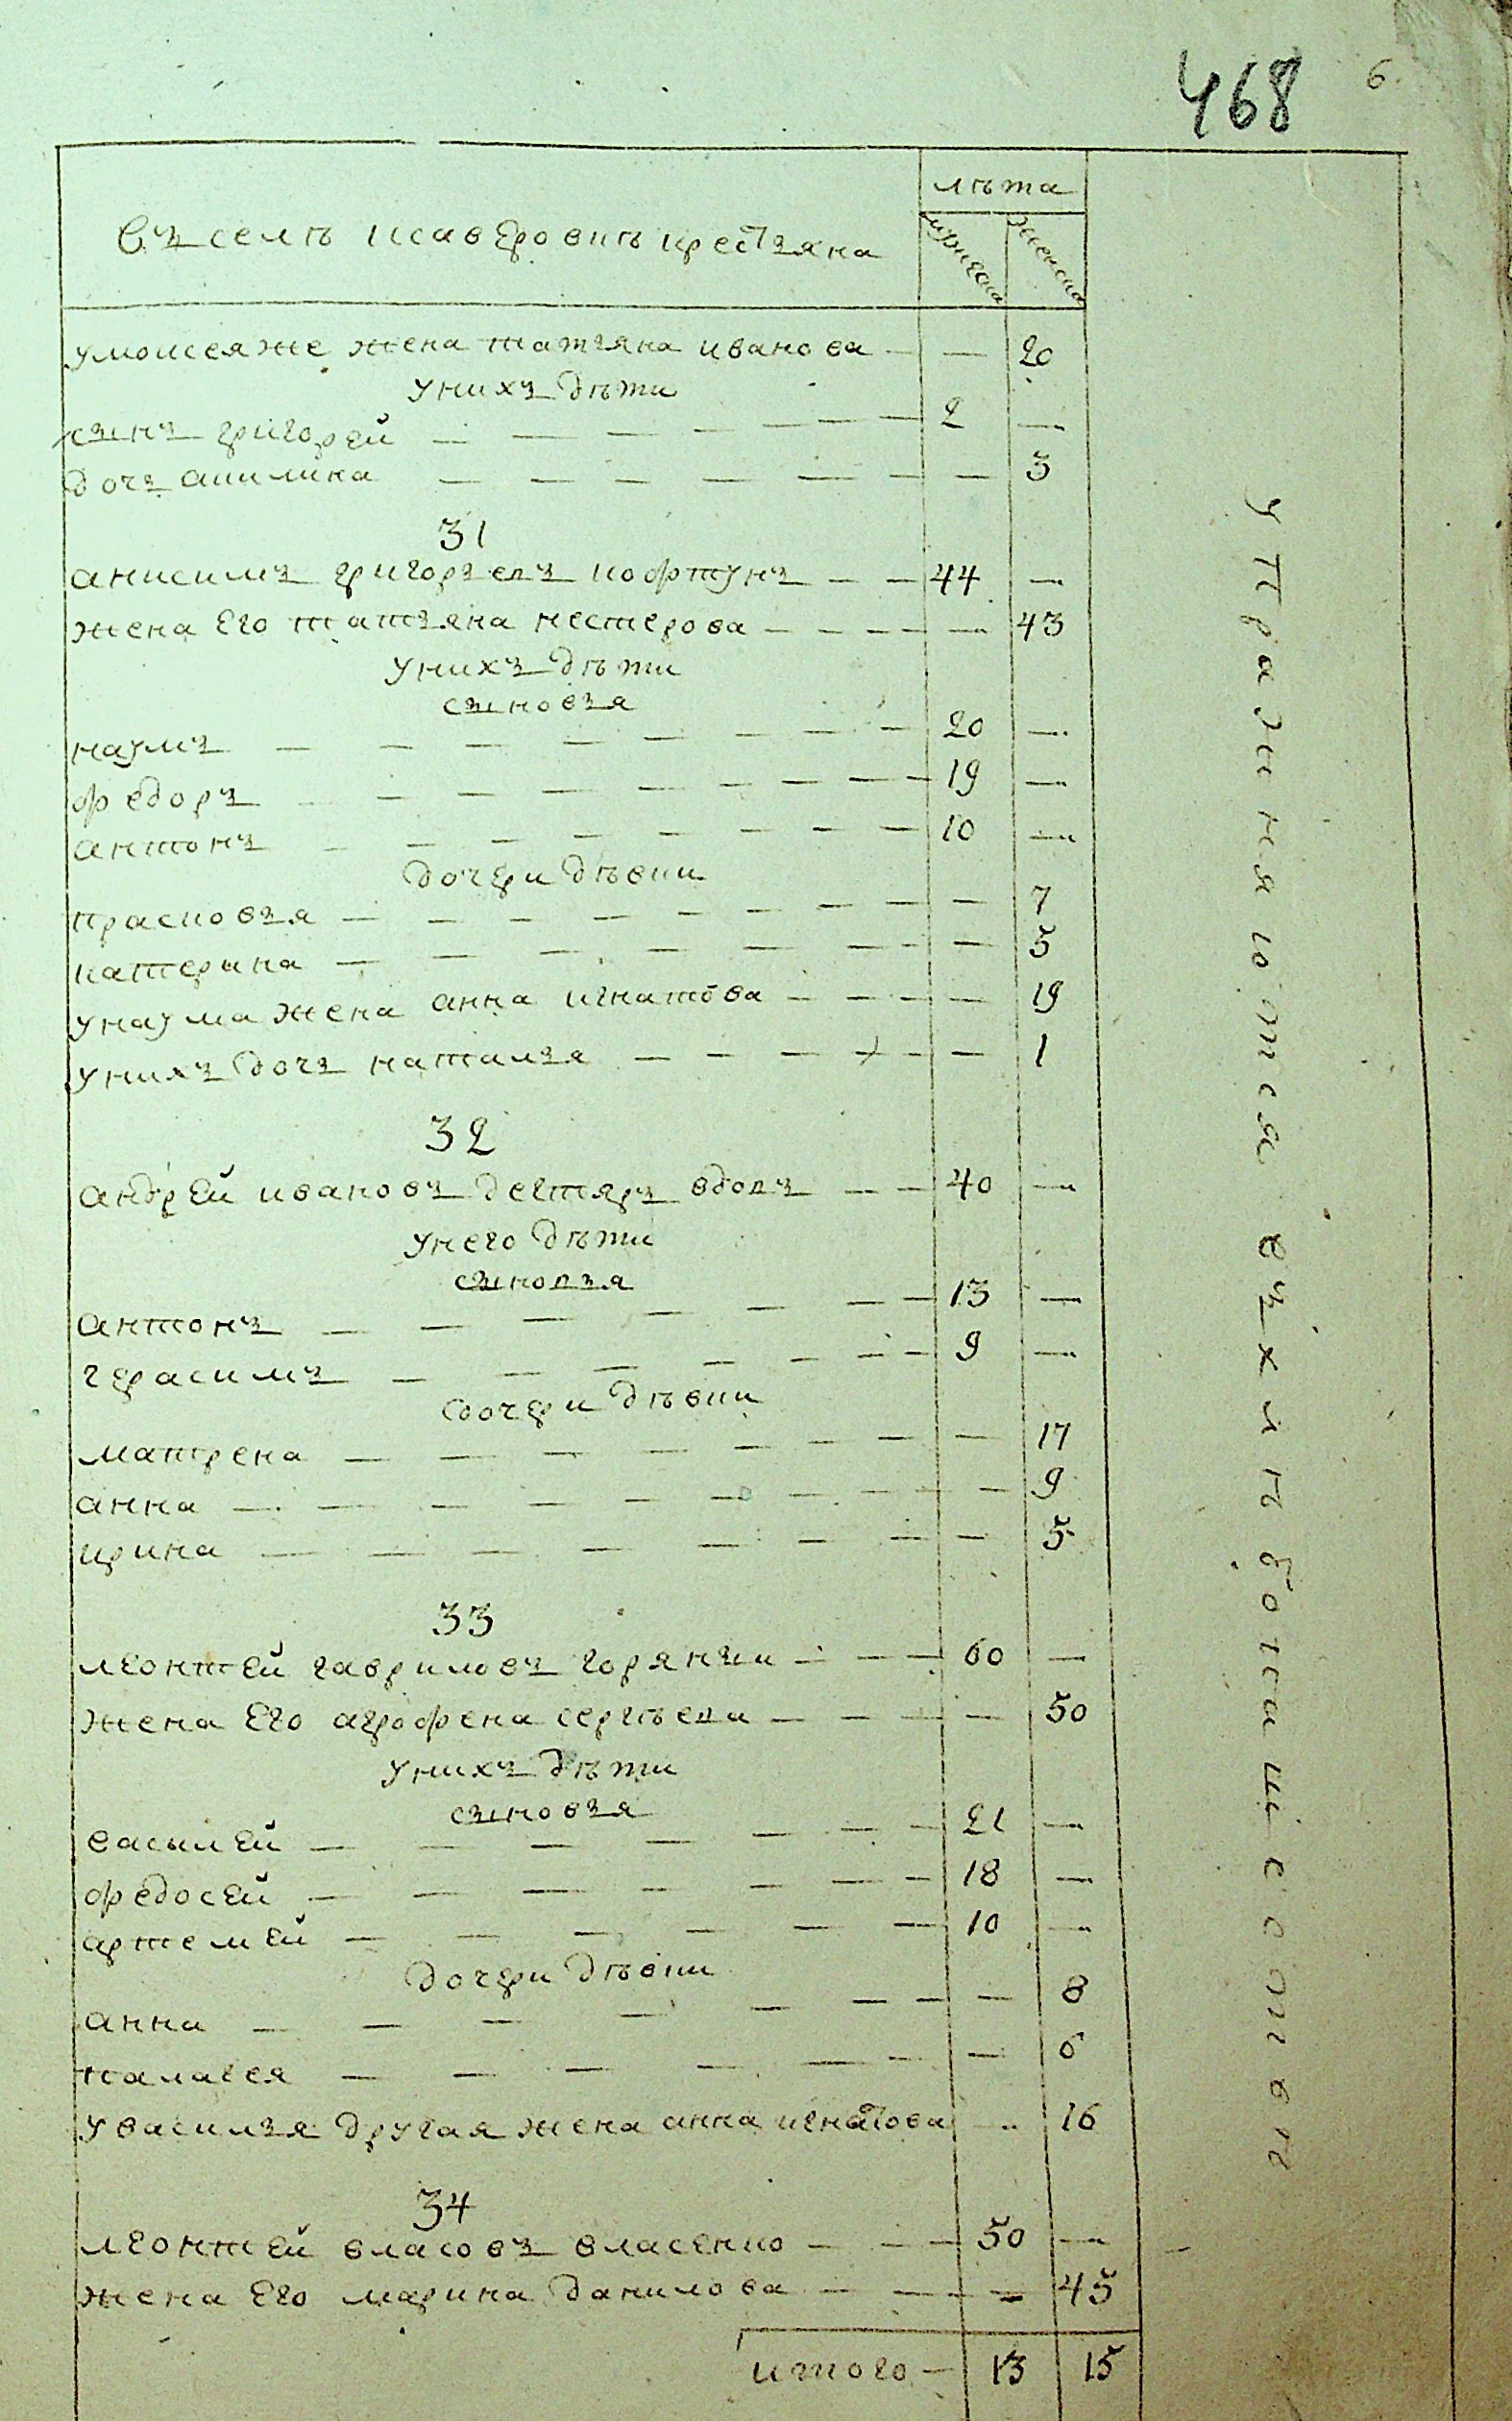 468 6.
лѣта
въ селѣ кавѣровкѣ крестьяна мужеска женска
умоисея же жена татьяна иванова — — 20
унихъ дѣти
сынъ григорей — 2 —
дочъ акилина — — 3
31
анисимъ григорьевъ кофтунъ — 44 —
жена Его татьяна нестерова — — 43
унихъ дѣти
сыновья
наумъ — 20 —
федоръ — 19 —
антонъ — 10 —
дочери дѣвки
прасковья — — 7
катерина — — 5
унаума жена анна игнатова — — 19
унихъ дочъ наталья — — 1
32
андрей ивановъ дегтярь вдовъ — 40 —
унего дѣти
сыновья
антонъ — 13 —
герасимъ — 9 —
дочери дѣвки
матрена — — 17
анна — — 9
ирина — — 5
33
леонтей гавриловъ — 60 —
жена Его агрофена сергѣева — — 50
унихъ дѣти
сыновья
василей — 21 —
федосей — 18 —
артемей — 10 —
дочери дѣвки
анна — — 8
палагея — — 6
увасилья другая жена анна игнатова — 16
34
леонтей власовъ власенко — 50 —
жена Его марина данилова — — 45
итого — 13 15
упражняются въ хлѣбопашеской